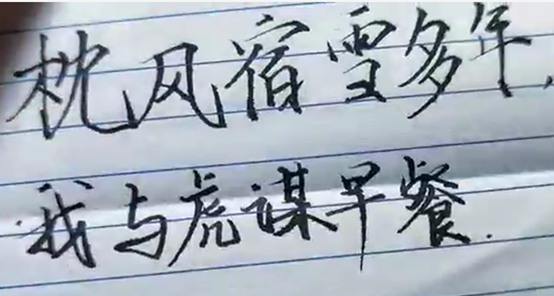 枕风宿雪多年,
我与虎谋早餐.